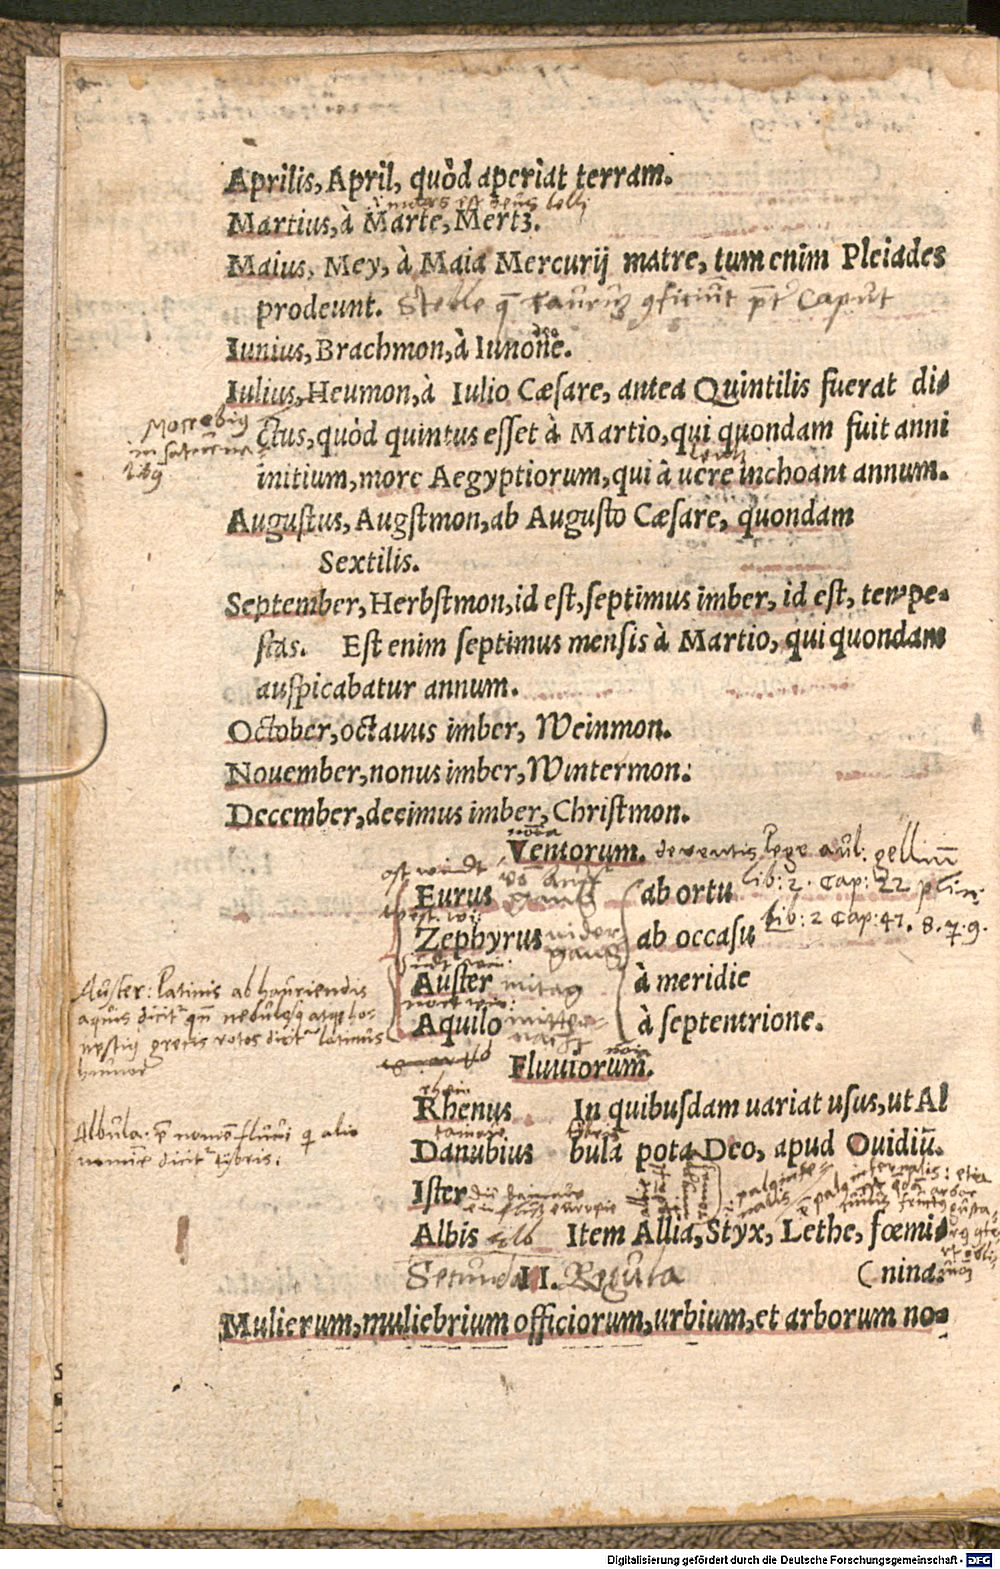 Aprilis, April, quòd aperiat terram.
Martius, à Marte, Mertz.
Maius, Mey, à Maia Mercurij matre, tum enim Pleiades
prodeunt. Stelle q̄ Caput
Iunius, Brachmon, à Iunone.
dea
Iulius, Heumon, à Iulio Cæsare, antea Quintilis fuerat di-
ctus, quòd quintus esset à Martio, qui quondam fuit anni
initium, more Aegyptiorum, qui à uere inchoant annum.
Augustus, Augstmon, ab Augusto Cæsare, quondam
Sextilis.
September, Herbstmon, id est, septimus imber, id est, tempe-
stas. Est enim septimus mensis à Martio, qui quondam
auspicabatur annum.
October, octauus imber, Weinmon.
Nouember, nonus imber, Wintermon.
December, decimus imber, Christmon.
Ventorum. de ventis lege aul: gelliū
lib: 2. Cap: 22 plin:
lib: 2 Cap: 47. 8. 7. 9.
ost windt
Eurus ab ortu
Zephyrus nider gang ab occasu
Auster mitag à meridie
Aquilo mitter nacht à septentrione.
Auster: latinis ab hauriendis
aquis
Fluuiorum.
rhein
Rhenus In quibusdam uariat usus, ut Al
Danubius bula pota Deo, apud Ouidiū.
Albula: nomē fluuii q alio
nomīe tybris:
Ister
Albis elb Item Allia, Styx, Lethe, fœmi-
(nina.
Secunda II. Regula
Mulierum, muliebrium officiorum, urbium, et arborum no-
Digitalisierung gefördert durch die Deutsche Forschungsgemeinschaft - DFG